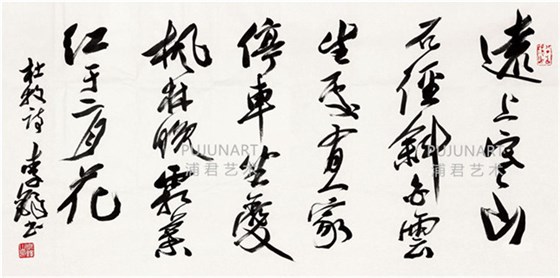 遠上寒山
石徑斜白雲
生處有人家
停車坐愛
楓林晚霜葉
红于二月花
杜牧诗 李鐸书
PUJUNART
浦君艺术
PUJUNART
浦君艺术